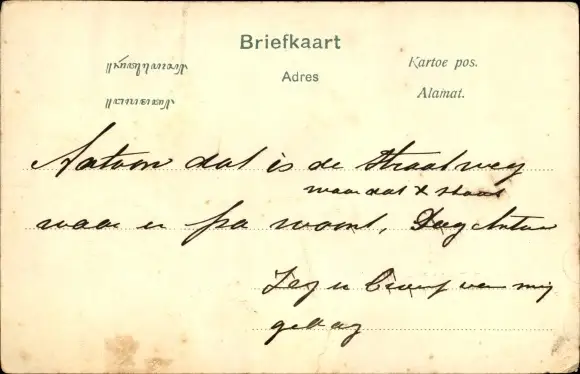 Briefkaart
Adres
Kartoe pos.
Alamat.
Antoon dat is de Straatweg
waar dat x staat
waar u pa woont, Dag Antoon
Zeg u van mij
gedag